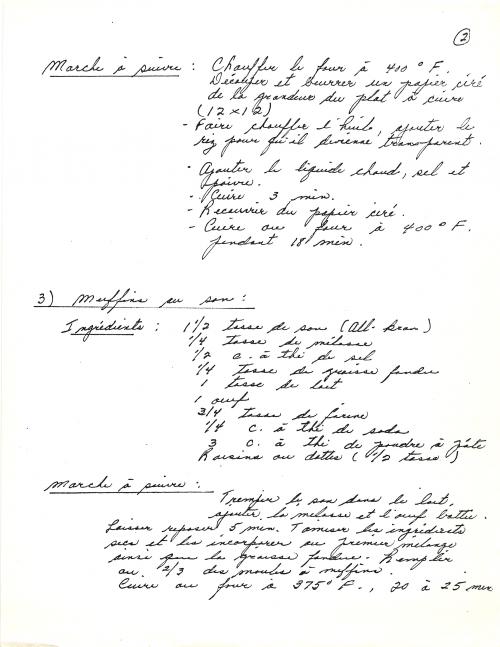 2
Marche à suivre : Chauffer le four à 400° F.
Découper et beurrer un papier ciré
de la grandeur du plat à cuire
(12 x 12)
- Faire chauffer l'huile, ajouter le
riz pour qu'il devienne transparent.
- Ajouter le liquide chaud, sel et
poivre.
- Cuire 3 min.
- Recouvrir du papier ciré.
- Cuire au four à 400° F.
pendant 18 min.
3) Muffins au son :
Ingrédients : 1 1/2 tasse de son (All-bran)
1/4 tasse de mélasse
1/2 c. à thé de sel
1/4 tasse de graisse fondue
1 tasse de lait
1 oeuf
3/4 tasse de farine
1/4 c. à thé de soda
3 c. à thé de poudre à pâte
Raisins ou dattes (1/2 tasse)
Marche à suivre :
Tremper le son dans le lait,
ajouter la mélasse et l'oeuf battu.
Laisser reposer 5 min. Tamiser les ingrédients
secs et les incorporer au premier mélange
ainsi que la graisse fondue. Remplir
au 2/3 des moules à muffins.
Cuire au four à 375° F., 20 à 25 min